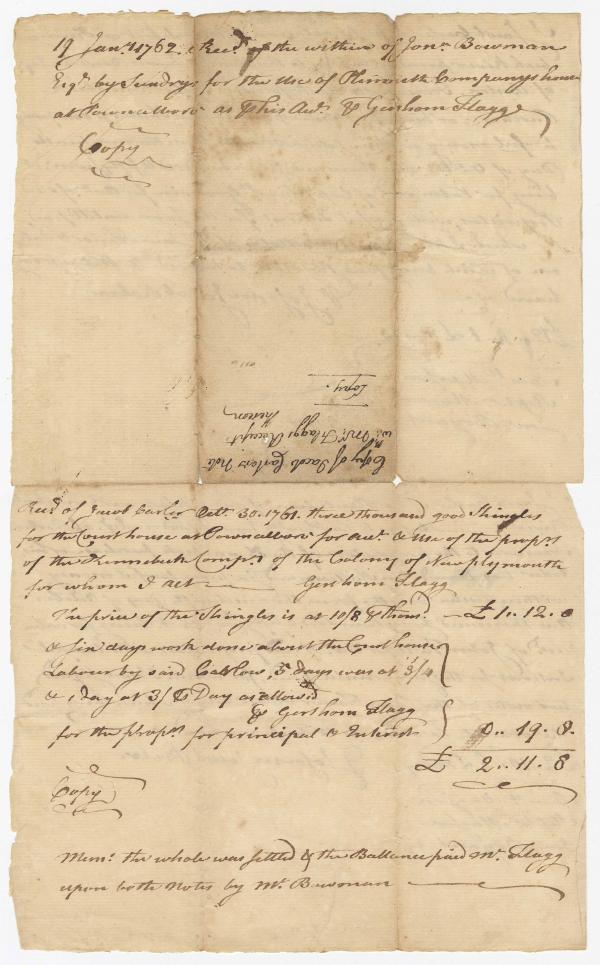 19 Jany. 1762. Recd. of the within of Jona. Bowman
Esqr. by Sundrys for the Use of Plimouth Companys house
at Pownalboro' as this Acct. ⅌ Gershom Flagg
Copy
Copy of Jacob Carlows Note
wth. Mr. Flaggs Receipt
thereon
Copy.
Recd. of Jacob Carlow Octr. 30. 1761. three thousand good Shingles
for the Court house at Pownalboro' for acct. & Use of the proprs.
of the Kennebeck Compy. of the Colony of New plymouth
for whom I act Gershom Flagg
The price of the Shingles is at 10/8 ⅌ thous.d £1.. 12. 0
& six days work done about the Court house
Labour by said Carlow, 5 days was at 3/4
& 1 day at 3/ ⅌ Day as allow'd
⅌ Gershom Flagg
for the proprs. for principal & Interest 0.. 19. 8.
£ 2.. 11. 8
Copy
Memo. the whole was settled & the Ballance paid Mr. Flagg
upon both Notes by Mr. Bowman